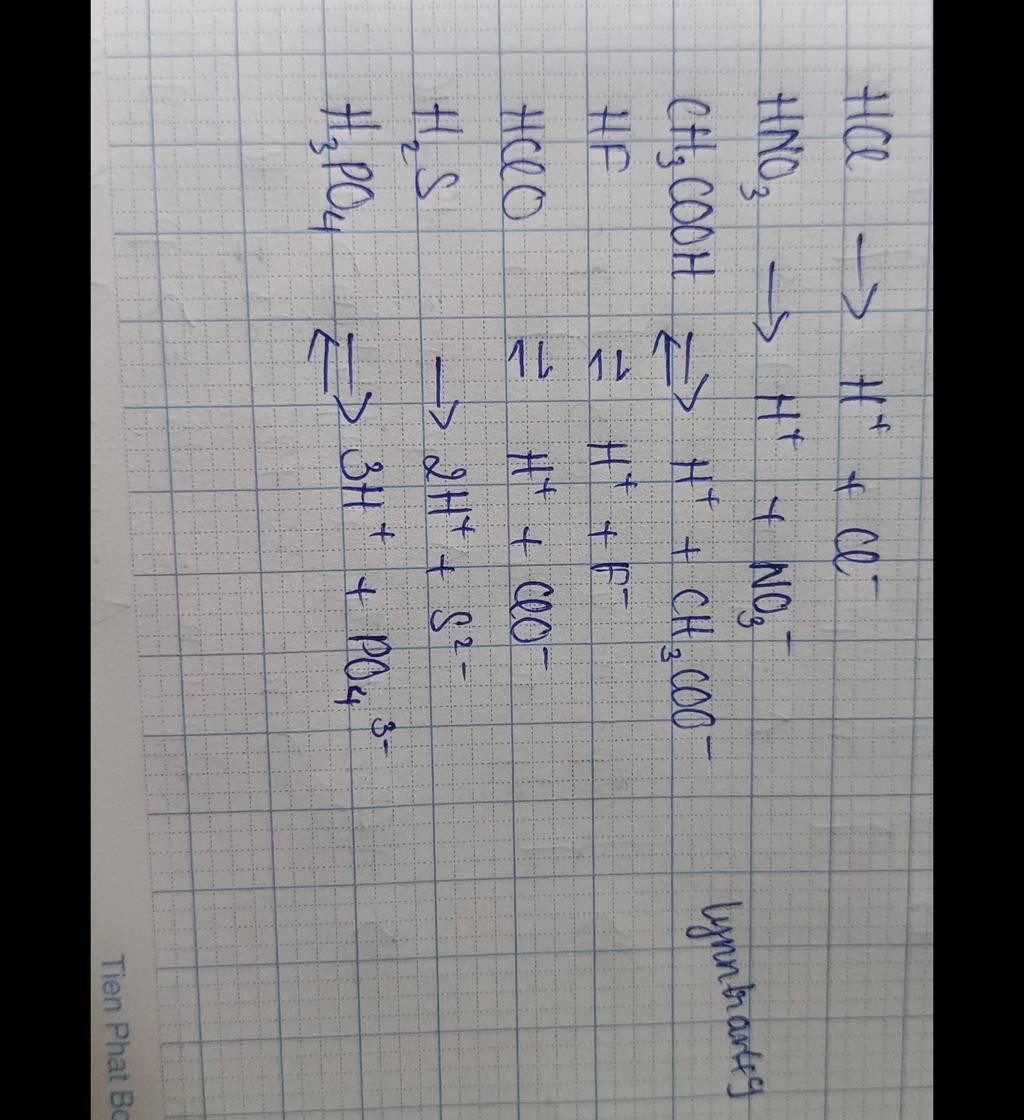 HCl → H⁺ + Cl⁻
HNO₃ → H⁺ + NO₃⁻
CH₃COOH ⇄ H⁺ + CH₃COO⁻
HF ⇌ H⁺ + F⁻
HClO ⇌ H⁺ + ClO⁻
H₂S → 2H⁺ + S²⁻
H₃PO₄ ⇄ 3H⁺ + PO₄³⁻
Tien Phat